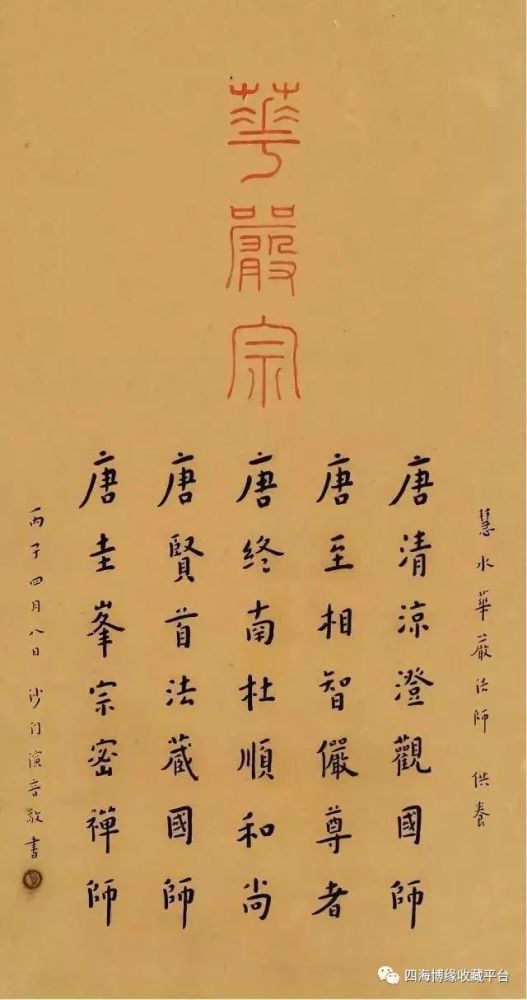 華嚴宗
慧水華嚴法師 供養
唐清涼澄觀國師
唐至相智儼尊者
唐終南杜順和尚
唐賢首法藏國師
唐圭峯宗密禪師
丙子四月八日 沙門演音敬書
四海博缘收藏平台